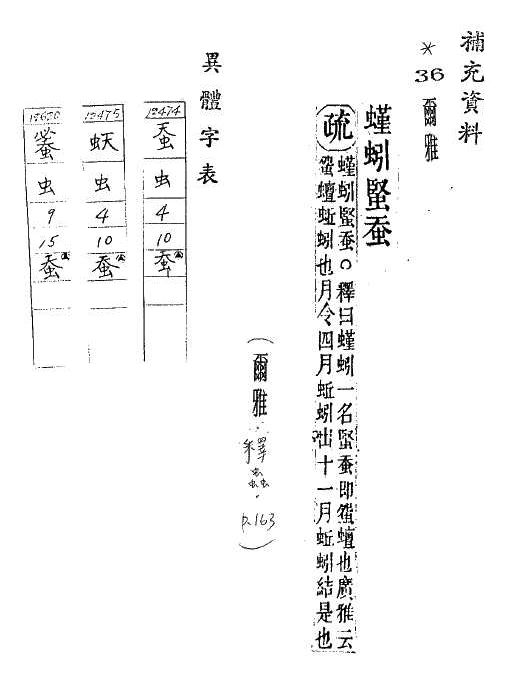 補充資料
* 36 爾雅
螼蚓䘆蚕
疏
螼蚓䘆蚕○釋曰螼蚓一名䘆蚕即䖤蟺也廣雅云
䖤蟺蚯蚓也月令四月蚯蚓出十一月蚯蚓結是也
(爾雅:釋蟲.p.163)
異體字表
12474 蚕 虫 4 10 蚕
12475 虫 4 10 蚕
12620 虫 9 15 蚕